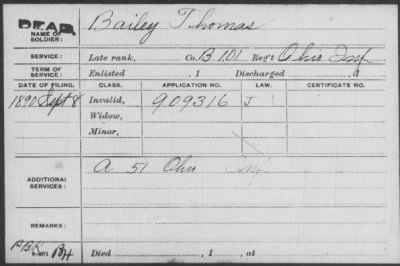 DEAD
NAME OF SOLDIER: Bailey Thomas
SERVICE: Late rank, Co. B 101 Reg't Ohio Inf
TERM OF SERVICE: Enlisted , 1 Discharged , 1
DATE OF FILING. CLASS. APPLICATION NO. LAW. CERTIFICATE NO.
1890 Sept 8 Invalid, 909316 J
Widow,
Minor,
ADDITIONAL SERVICES: A 51 Ohio Inf
REMARKS:
PBK BH
Died , 1 , at